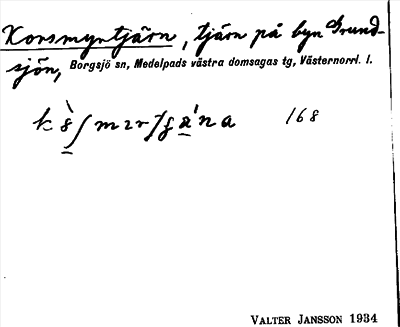 Korsmyrtjärn, tjärn på byn Grund-
sjön, Borgsjö sn, Medelpads västra domsagas tg, Västernorrl. l.
168
VALTER JANSSON 1934